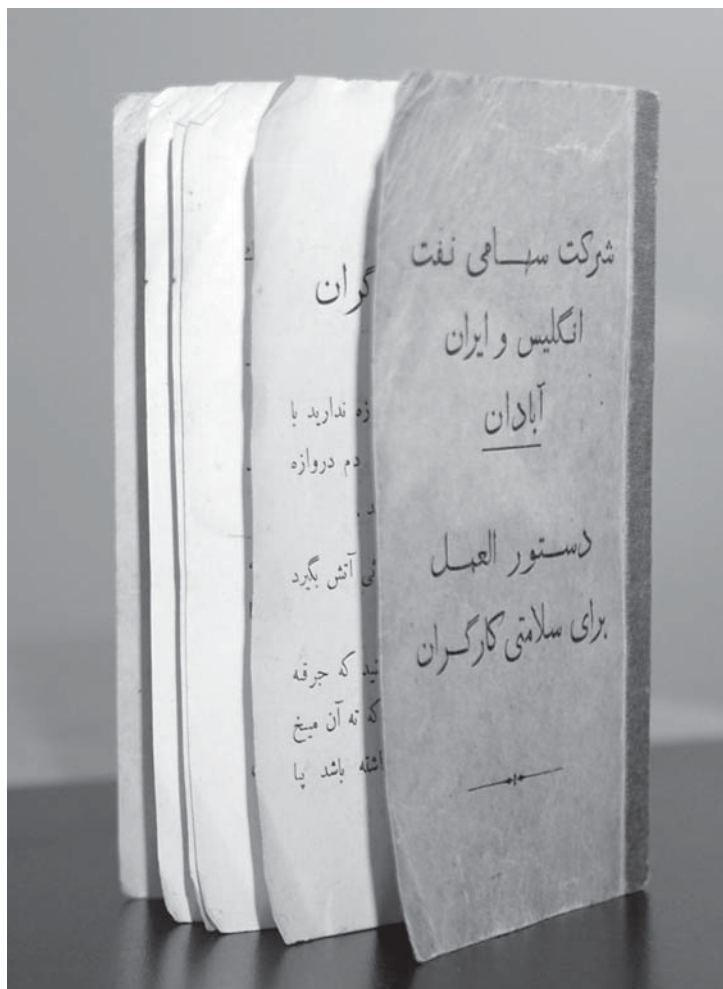 شرکت سهامی نفت
انگلیس و ایران
آبادان
دستور العمل
برای سلامتی کارگران
گران
زه ندارید با
دم دروازه
د .
ئی آتش بگیرد
نید که جرقه
که ته آن میخ
اشته باشد پا